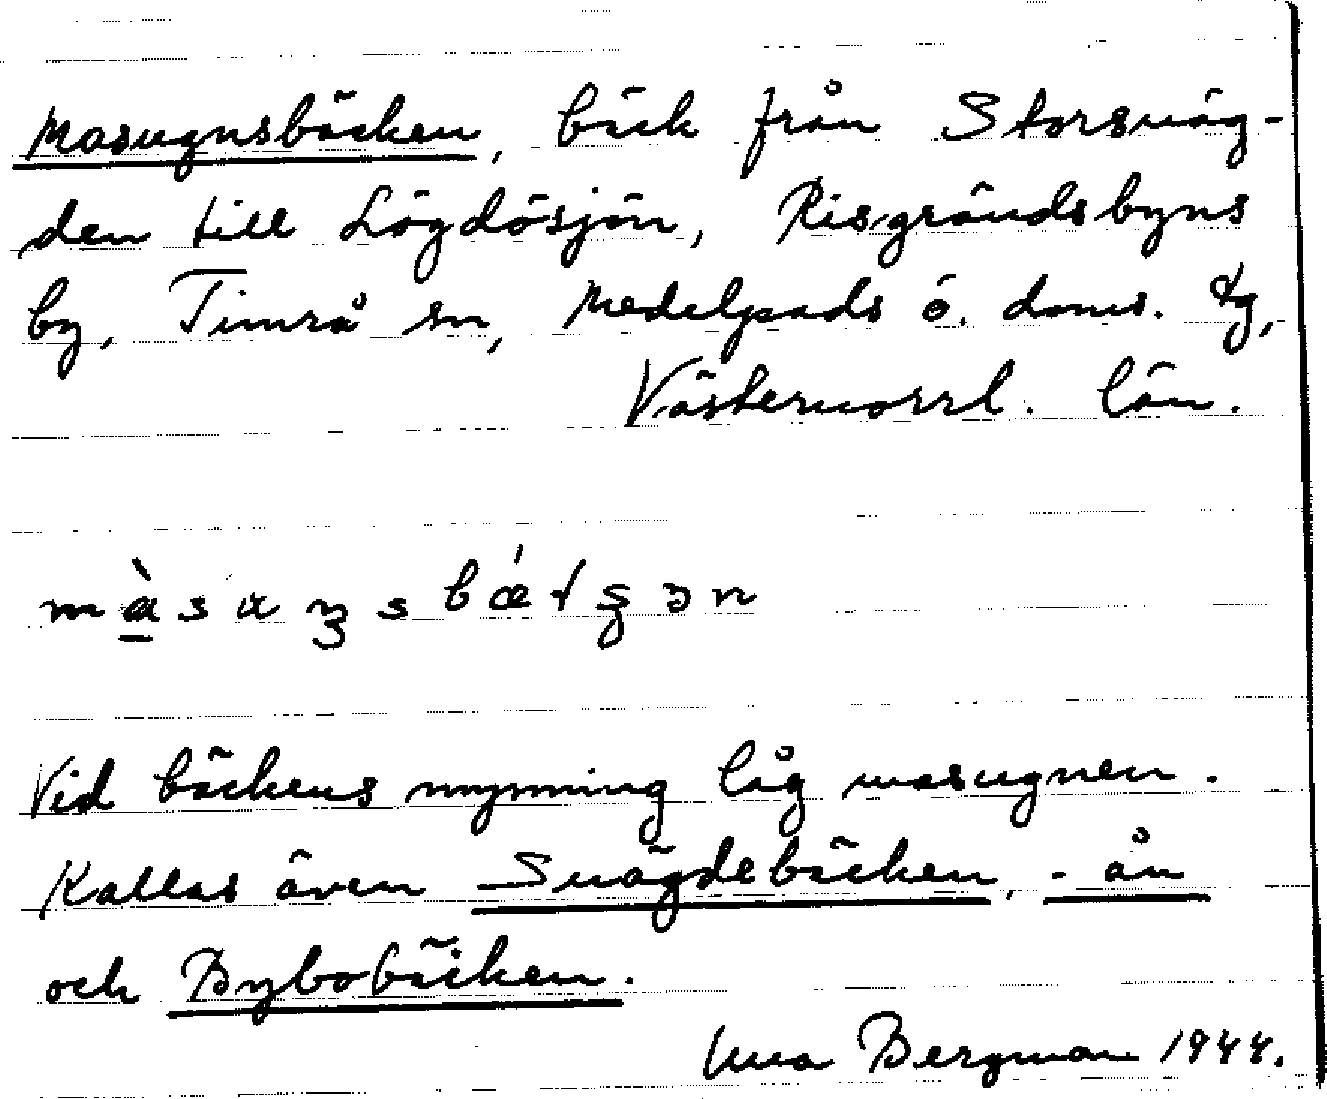 Masugnsbäcken, bäck från Storsnäg-
den till Lögdösjön, Risgrändsbyns
by, Timrå sn, Medelpads ö. doms. tg,
Västernorrl. län.
màsaʒsbǽtʂən
Vid bäckens mynning låg masugnen.
Kallas även Snägdebäcken, -ån
och Bybobäcken.
Bergman 1944.